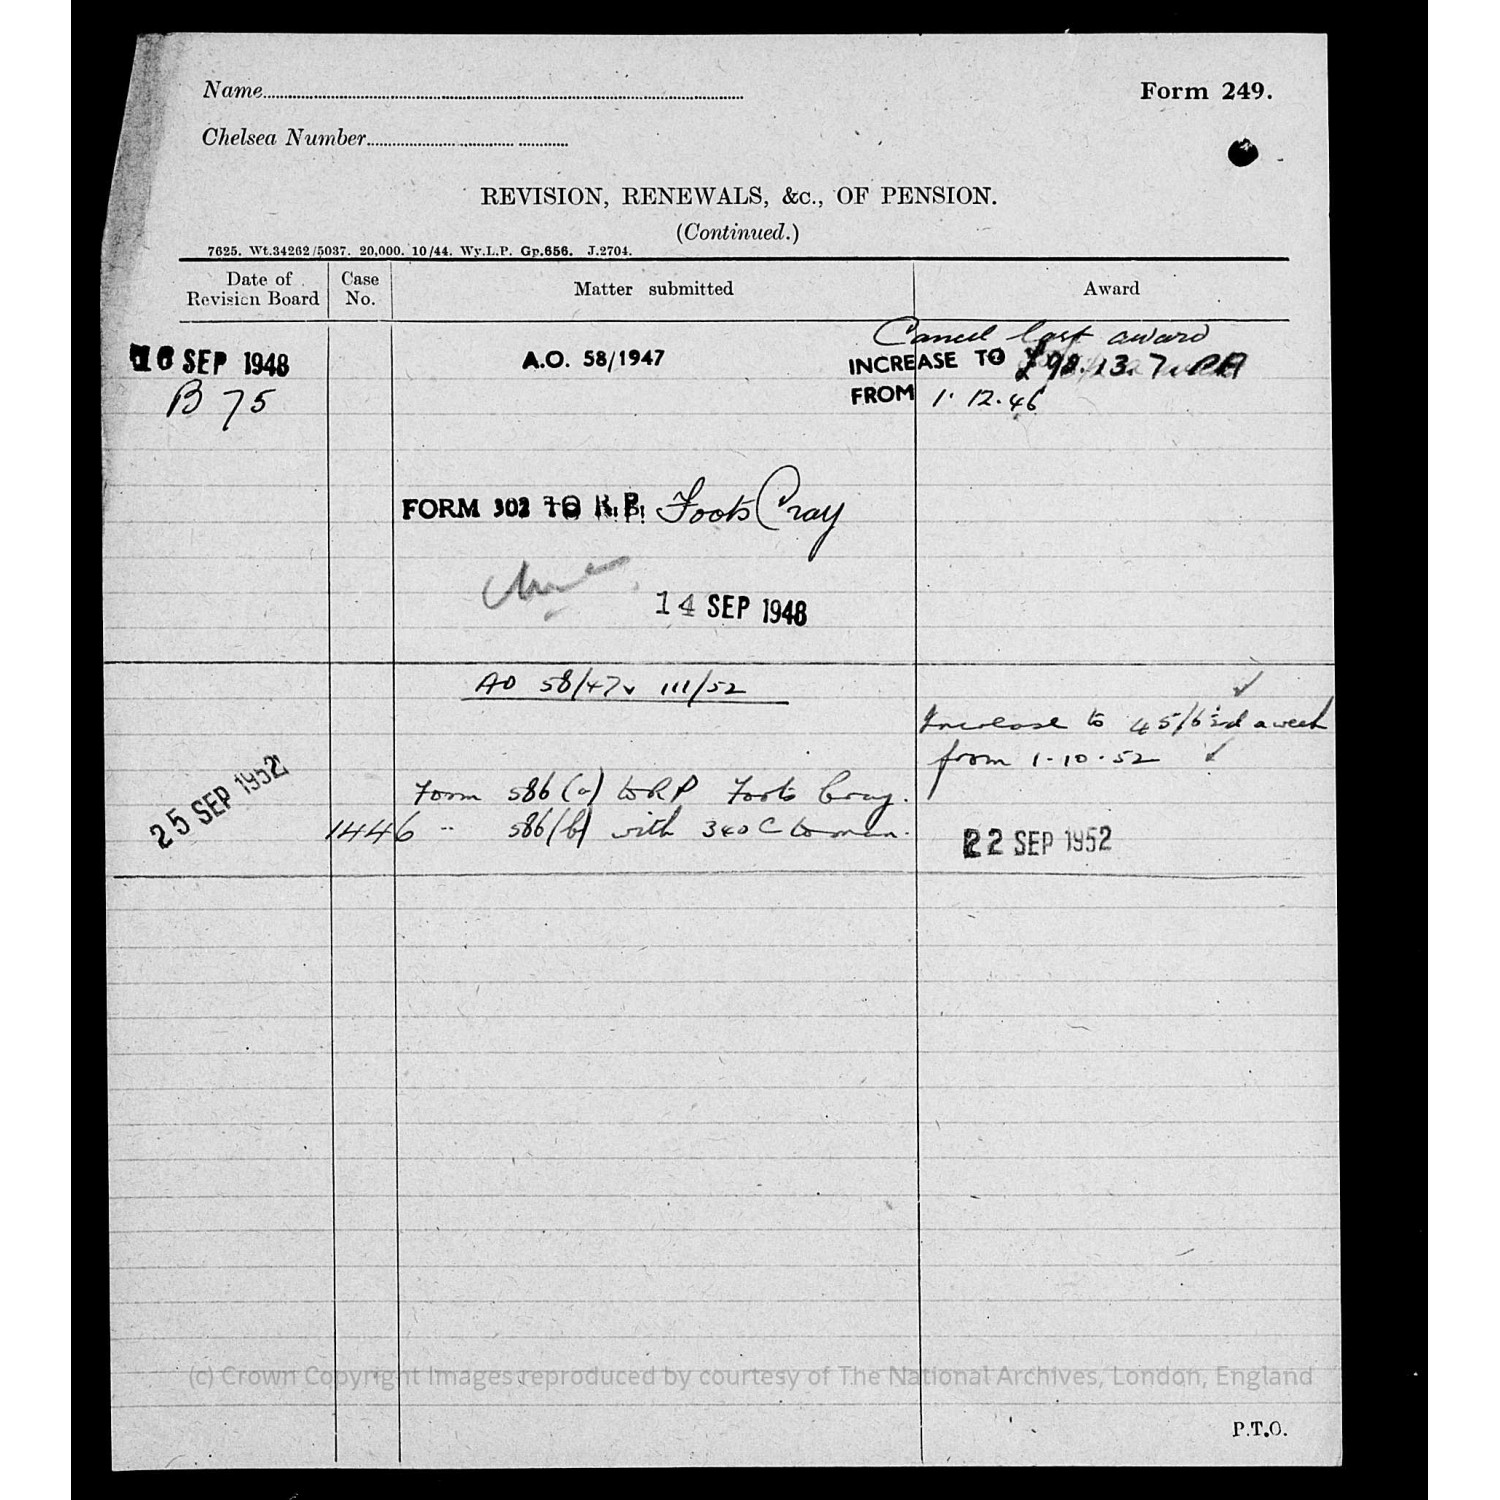 Name
Form 249.
Chelsea Number
REVISION, RENEWALS, &c., OF PENSION.
(Continued.)
7625. Wt.34262/5037. 20,000. 10/44. Wy.L.P. Gp.656. J.2704.
Date of Revision Board
Case No.
Matter submitted
Award
Cancel last award
16 SEP 1948
A.O. 58/1947
INCREASE TO £98.13.7. PA
B 75
FROM 1.12.46
FORM 302 TO R.P. Foots Cray
14 SEP 1948
AO 58/47 111/52
Increase to 45/6 a week
from 1-10-52
25 SEP 1952
Form 586(a) to RP Foots Cray.
1446 " 586(b) with 340C to man.
22 SEP 1952
(c) Crown Copyright Images reproduced by courtesy of The National Archives, London, England
P.T.O.